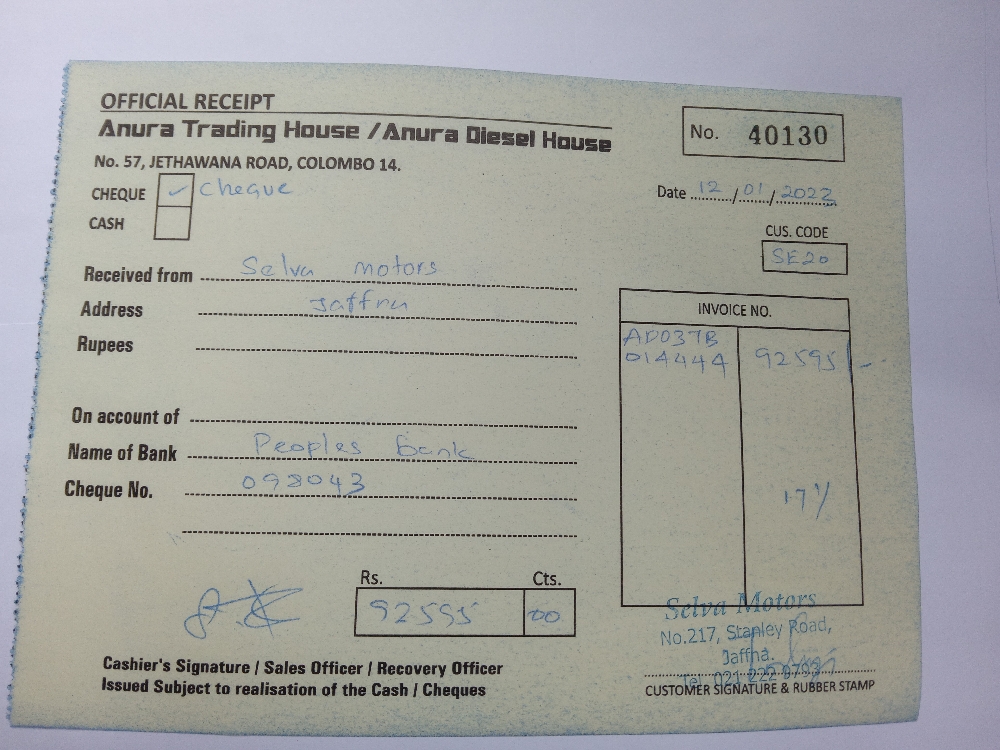 OFFICIAL RECEIPT
Anura Trading House / Anura Diesel House
No. 40130
No. 57, JETHAWANA ROAD, COLOMBO 14.
CHEQUE ✓ Cheque
Date 12/01/2022
CASH
CUS. CODE
SE20
Received from Selva motors
Address Jaffna
INVOICE NO.
Rupees
AD037B
014444 92595/-
On account of
Name of Bank Peoples Bank
Cheque No. 098043
Rs. Cts.
92595 00
Selva Motors
No.217, Stanley Road,
Jaffna.
Tel: 021 222 9793
Cashier's Signature / Sales Officer / Recovery Officer
Issued Subject to realisation of the Cash / Cheques
CUSTOMER SIGNATURE & RUBBER STAMP